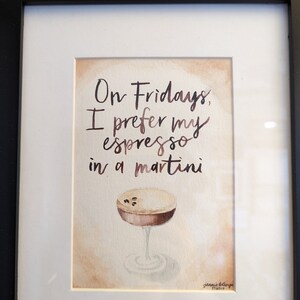 On Fridays,
I prefer my
espresso
in a martini